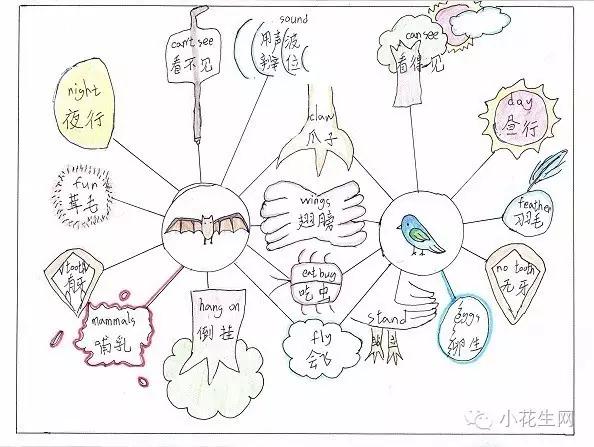 sound
can't see
看不见
用声波
辨位
can see
看得见
night
夜行
claw
爪子
day
昼行
fun
茸毛
wings
翅膀
feather
羽毛
tooth
有牙
eat bug
吃虫
no tooth
无牙
mammals
哺乳
hang on
倒挂
fly
会飞
stand
eggs
卵生
小花生网